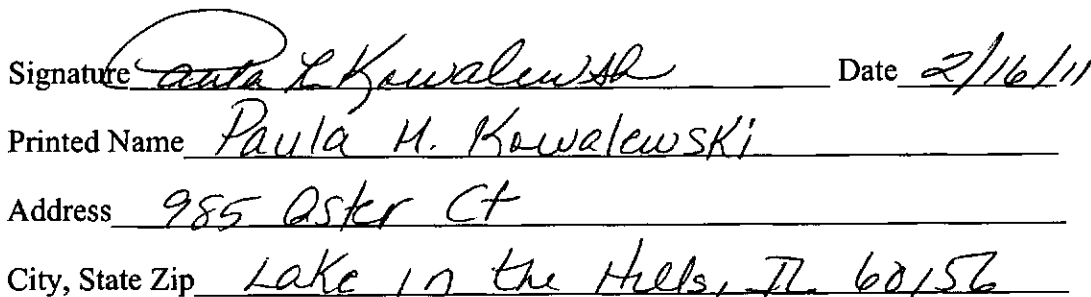 Signature Paula L Kowalewski Date 2/16/11
Printed Name Paula H. Kowalewski
Address 985 Aster Ct
City, State Zip Lake in the Hills, IL 60156